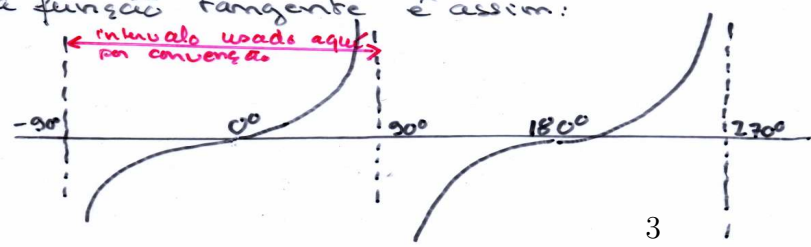 a função tangente é assim:
intervalo usado aqui
por convenção
-90° 0° 90° 180° 270°
3